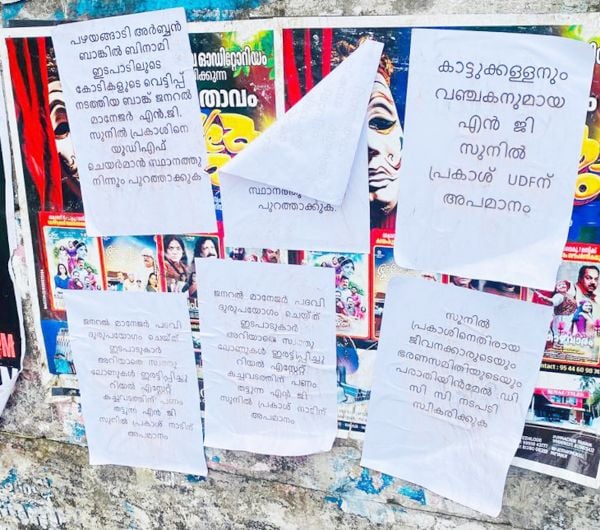 പഴയങ്ങാടി അർബ്ബൻ
ബാങ്കിൽ ബിനാമി
ഇടപാടിലൂടെ
കോടികളുടെ വെട്ടിപ്പ്
നടത്തിയ ബാങ്ക് ജനറൽ
മാനേജർ എൻ.ജി.
സുനിൽ പ്രകാശിനെ
യുഡിഎഫ്
ചെയർമാൻ സ്ഥാനത്തു
നിന്നും പുറത്താക്കുക
ഓഡിറ്റോറിയം
സ്ഥാനത്തു
പുറത്താക്കുക.
കാട്ടുക്കള്ളനും
വഞ്ചകനുമായ
എൻ ജി
സുനിൽ
പ്രകാശ് UDFന്
അപമാനം
ജനറൽ മാനേജർ പദവി
ദുരുപയോഗം ചെയ്ത്
ഇടപാടുകാർ
അറിയാതെ സ്വന്തം
ലോണുകൾ ഇരട്ടിപ്പിച്ചു
റിയൽ എസ്റ്റേറ്റ്
കച്ചവടത്തിന് പണം
തട്ടുന്ന എൻ ജി
സുനിൽ പ്രകാശ് നാടിന്
അപമാനം
ജനറൽ മാനേജർ പദവി
ദുരുപയോഗം ചെയ്ത്
ഇടപാടുകാർ
അറിയാതെ സ്വന്തം
ലോണുകൾ ഇരട്ടിപ്പിച്ചു
റിയൽ എസ്റ്റേറ്റ്
കച്ചവടത്തിന് പണം
തട്ടുന്ന എൻ ജി
സുനിൽ പ്രകാശ് നാടിന്
അപമാനം
സുനിൽ
പ്രകാശിനെതിരായ
ജീവനക്കാരുടെയും
ഭരണസമിതിയുടെയും
പരാതിയിൻമേൽ ഡി
സി സി നടപടി
സ്വീകരിക്കുക